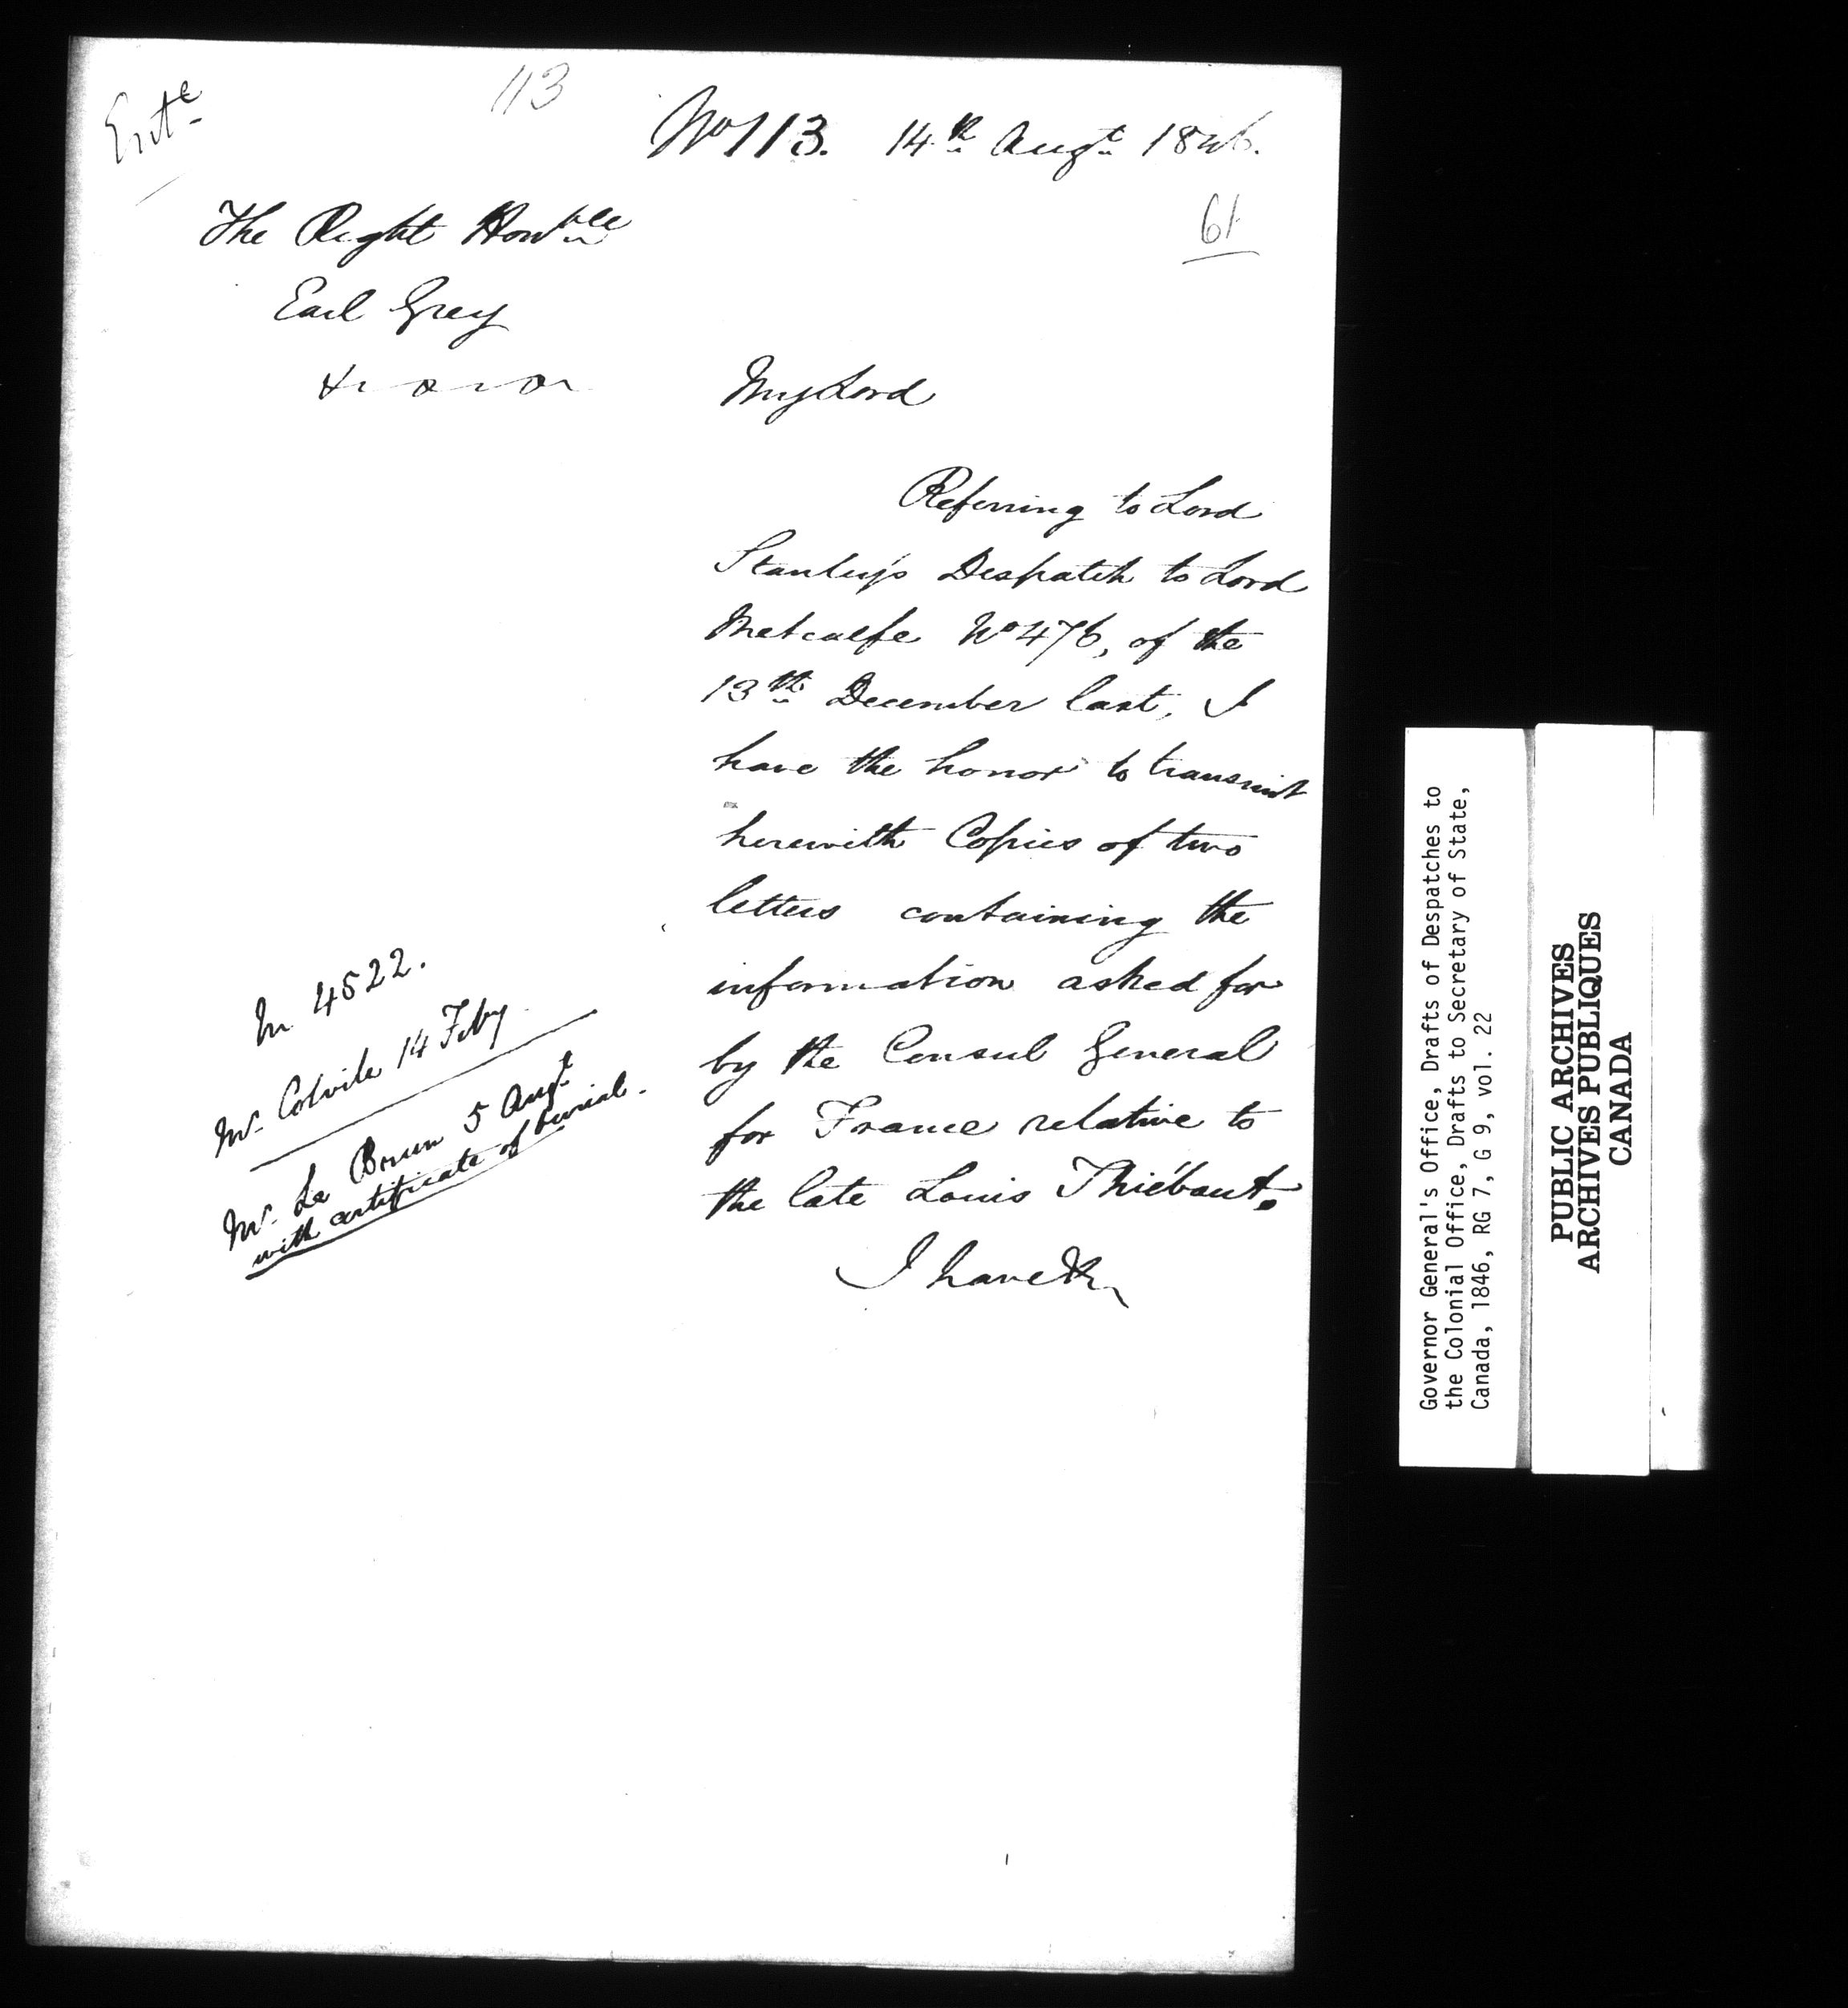 Entd
113
No 113. 14th Augt 1846.
61
The Right Honble
Earl Grey
My Lord
Referring to Lord
Stanley's Despatch to Lord
Metcalfe No 476, of the
13th December last, I
have the honor to transmit
herewith Copies of two
letters containing the
information asked for
by the Consul General
for France relative to
the late Louis Thiébaut.
I have &c
In 4522.
Mr Colvile 14 Feby
Mr Le Brun 5 Augt
with certificate of burial.
Governor General's Office, Drafts of Despatches to
the Colonial Office, Drafts to Secretary of State,
Canada, 1846, RG 7, G 9, vol. 22
PUBLIC ARCHIVES
ARCHIVES PUBLIQUES
CANADA